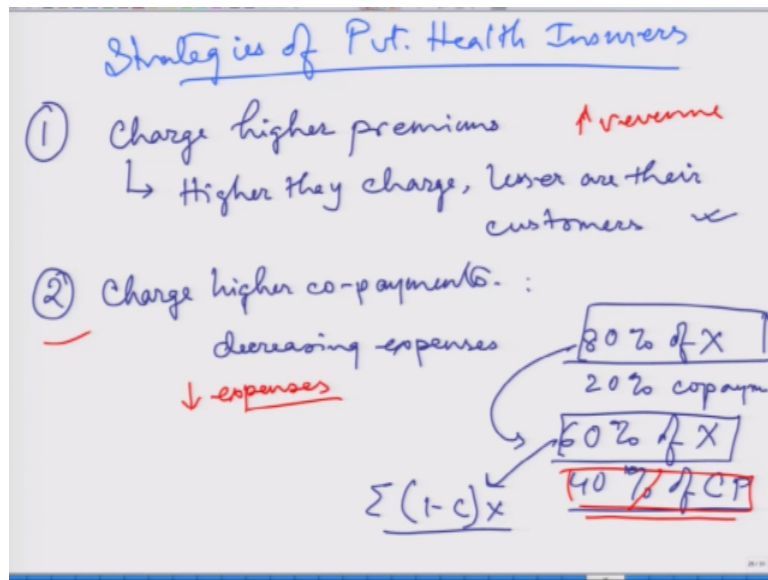 Strategies of Pvt. Health Insurers
① Charge higher premiums ↑ revenue
↳ Higher they charge, lesser are their
customers
② Charge higher co-payments. :
decreasing expenses
↓ expenses
80% of X
20% copaym
60% of X
40% of CP
Σ(1-c)x